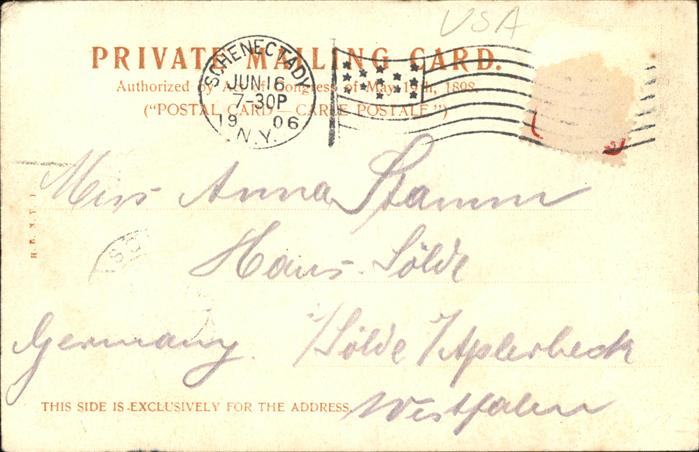 USA
PRIVATE MAILING CARD.
Authorized by Act of Congress of May 19th, 1898.
("POSTAL CARD — CARTE POSTALE")
SCHENECTADY
JUN 16
7-30P
19 06
N.Y.
Miss Anna Stamm
Haus-Sölde
Germany. i/Sölde b/Aplerbeck
THIS SIDE IS EXCLUSIVELY FOR THE ADDRESS.
Westfalen